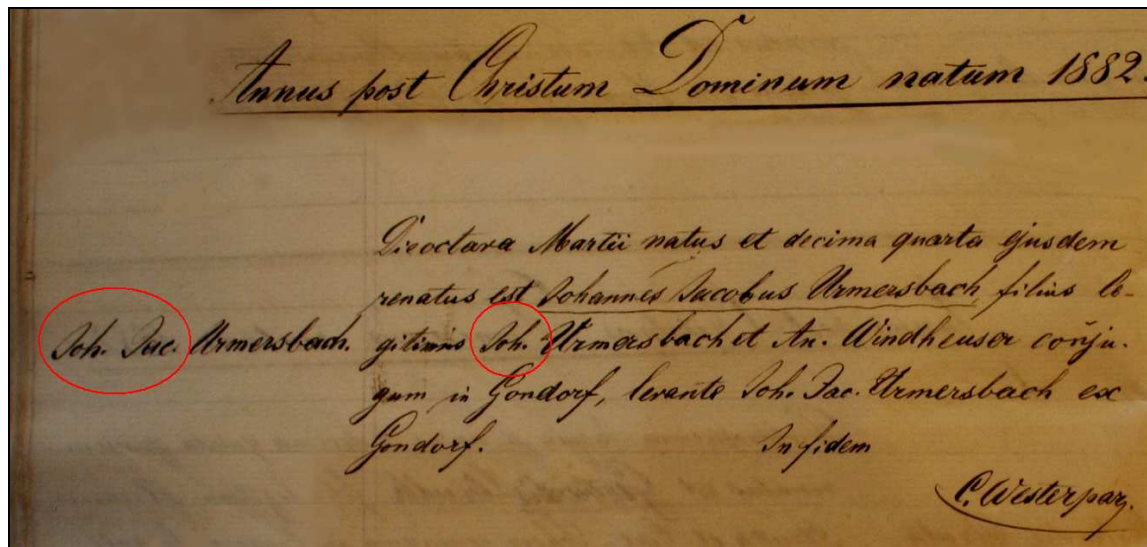 Annus post Christum Dominum natum 1882
Die octava Martii natus et decima quarta ejusdem
renatus est Johannes Jacobus Urmersbach, filius le-
Joh. Jac. Urmersbach. gitimus Joh. Urmersbach et An. Windheuser conju-
gum in Gondorf, levante Joh. Jac. Urmersbach ex
Gondorf. In fidem
C. Wester par.